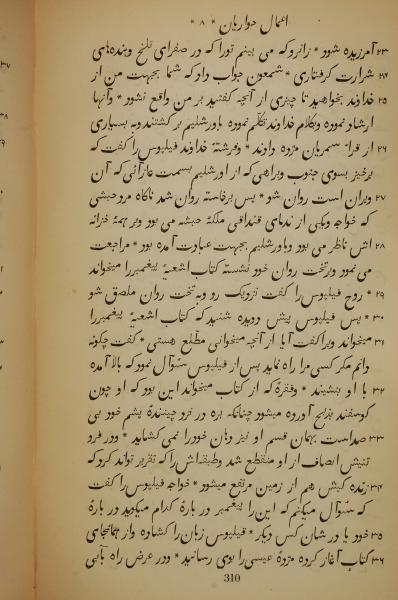 اعمال حواریان * ۸ *
۲۳ آمرزیده شود * زانرو که می بینم تورا که در صفرای تلخ وبندهای
۲۴ شرارت گرفتاری * شمعون جواب داد که شما بجهت من از
۲۵ خداوند بخواهید تا چیزی از آنچه گفتید بر من واقع نشود * وآنها
ارشاد نموده وبکلام خداوند تکلّم نموده باورشلیم بر گشتند وبه بسیاری
۲۶ از قراء سمریان مژده دادند * وفرشتهٔ خداوند فیلیوس را گفت که
برخیز بسوی جنوب وبراهی که از اورشلیم بسمت عازآئی که آن
۲۷ ویران است روان شو * پس برخاسته روان شد ناگاه مرد حبشی
که خواجه ویکی از ندمای قنداقی ملکهٔ حبشه می بود وبر همهٔ خزانه
۲۸ اش ناظر می بود وباورشلیم بجهت عبادت آمده بود * مراجعت
می نمود وبر تخت روان خود نشسته کتاب اشعیهٔ پیغمبر را میخواند
۲۹ * روح فیلیوس را گفت نزدیک رو وبه تخت روان ملصق شو
۳۰ * پس فیلیوس پیش دویده شنید که کتاب اشعیهٔ پیغمبر را
۳۱ میخواند ویرا گفت آیا از آنچه میخوانی مطلع هستی * گفت چگونه
دانم مگر کسی مرا راه نماید پس از فیلیوس سئوال نمود که بالا آمده
۳۲ با او بنشیند * وفقرهٔ که از کتاب میخواند این بود که او چون
گوسفند بذبح آورده میشود چنانکه بره در نزد چینندهٔ پشم خود بی
۳۳ صداست بهمان قسم او نیز دهان خود را نمی کشاید * ودر فرو
تنیش انصاف از او منقطع شد وطبقه اش را که تقریر تواند کرد که
۳۴ زنده کیش هم از زمین مرتفع میشود * خواجه فیلیوس را گفت
که سئوال میکنم که این را پیغمبر در بارهٔ کدام میگوید در بارهٔ
۳۵ خود یا در شان کس دیگر * فیلیوس زبان را کشاده واز همانجای
۳۶ کتاب آغاز کرده مژدهٔ عیسی را بوی رسانید * ودر عرض راه بآبی
310